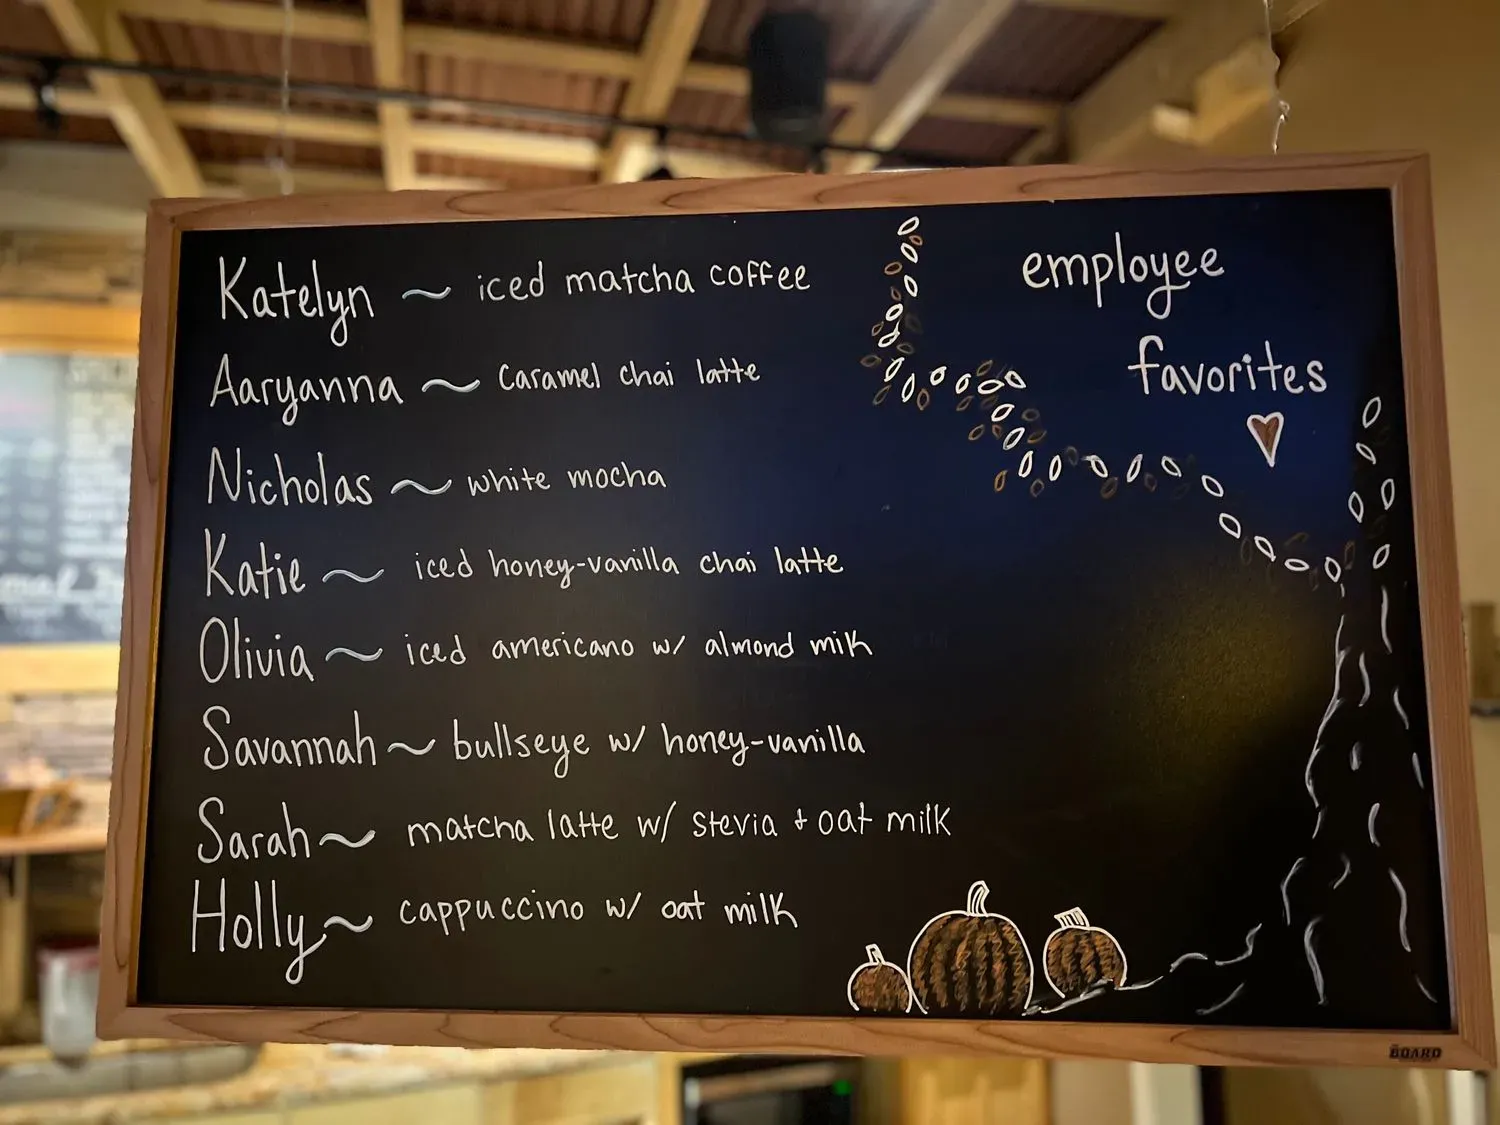 employee
favorites
Katelyn ~ iced matcha coffee
Aaryanna ~ caramel chai latte
Nicholas ~ white mocha
Katie ~ iced honey-vanilla chai latte
Olivia ~ iced americano w/ almond milk
Savannah ~ bullseye w/ honey-vanilla
Sarah ~ matcha latte w/ stevia + oat milk
Holly ~ cappuccino w/ oat milk
BOARD